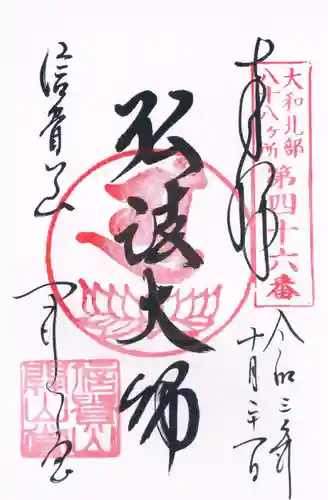 大和北部
八十八ヶ所
第四十六番
奉拝
令和三年
十月二十一日
弘法大師
信貴山
開山堂
信貴山
開山堂